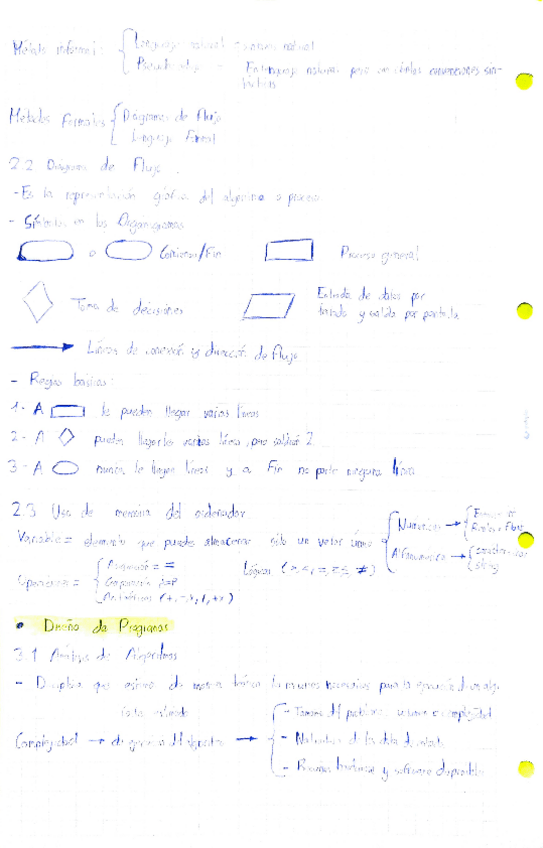 Métodos informal: { Lenguaje natural
Pseudocódigo - En lenguaje natural pero con ciertas convenciones sin-
tácticas
Métodos formales { Diagramas de Flujo
Lenguaje Formal
2.2 Diagrama de Flujo.
- Es la representación gráfica del algoritmo o proceso
- Símbolos en los Organigramas
o Comienzo/Fin Proceso general
Toma de decisiones
Entrada de datos por
teclado y salida por pantalla
Líneas de conexión y dirección de flujo
- Reglas básicas:
1- A le pueden llegar varias líneas
2- A pueden llegarle varias línea, pero saldrán 2
3- A nunca le llegan líneas y a Fin no parte ninguna línea
2.3 Uso de memoria del ordenador
Variable = elemento que puede almacenar sólo un valor { Numéricas →
Alfanuméricas → string
Operadores = { Asignación = =
Comparación
Aritméticos
Lógicos
• Diseño de Programas
3.1 Análisis de Algoritmos
- Disciplina que estima de manera teórica los recursos necesarios para la ejecución de un alg.
Complejidad → del algoritmo → { - Tamaño del problema, volumen o complejidad
- Naturaleza de los datos de entrada
- Recursos hardware y software disponibles